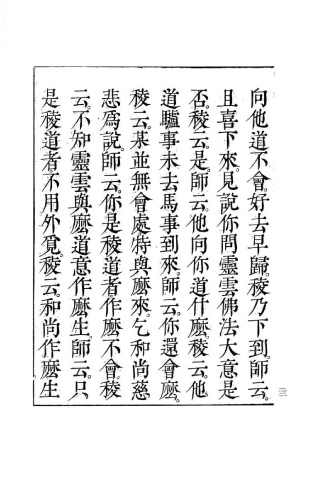 向他道不會。好去早歸。稜乃下到。師云。
且喜下來。見說你問靈雲佛法大意是
否。稜云。是。師云。他向你道什麼。稜云。他
道驢事未去馬事到來。師云。你還會麼。
稜云。某並無會處特與麼來。乞和尚慈
悲爲說。師云。你是稜道者作麼不會。稜
云。不知靈雲與麼道意作麼生。師云。只
是稜道者。不用外覓。稜云。和尚作麼生
二三